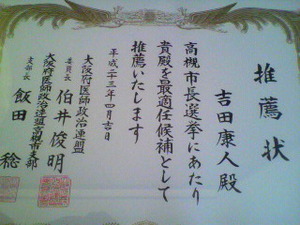 推薦状
吉田康人殿
高槻市長選挙にあたり
貴殿を最適任候補として
推薦いたします
平成二十三年四月吉日
大阪府医師政治連盟
委員長 伯井俊明
大阪府医師政治連盟高槻市支部
支部長 飯田 稔